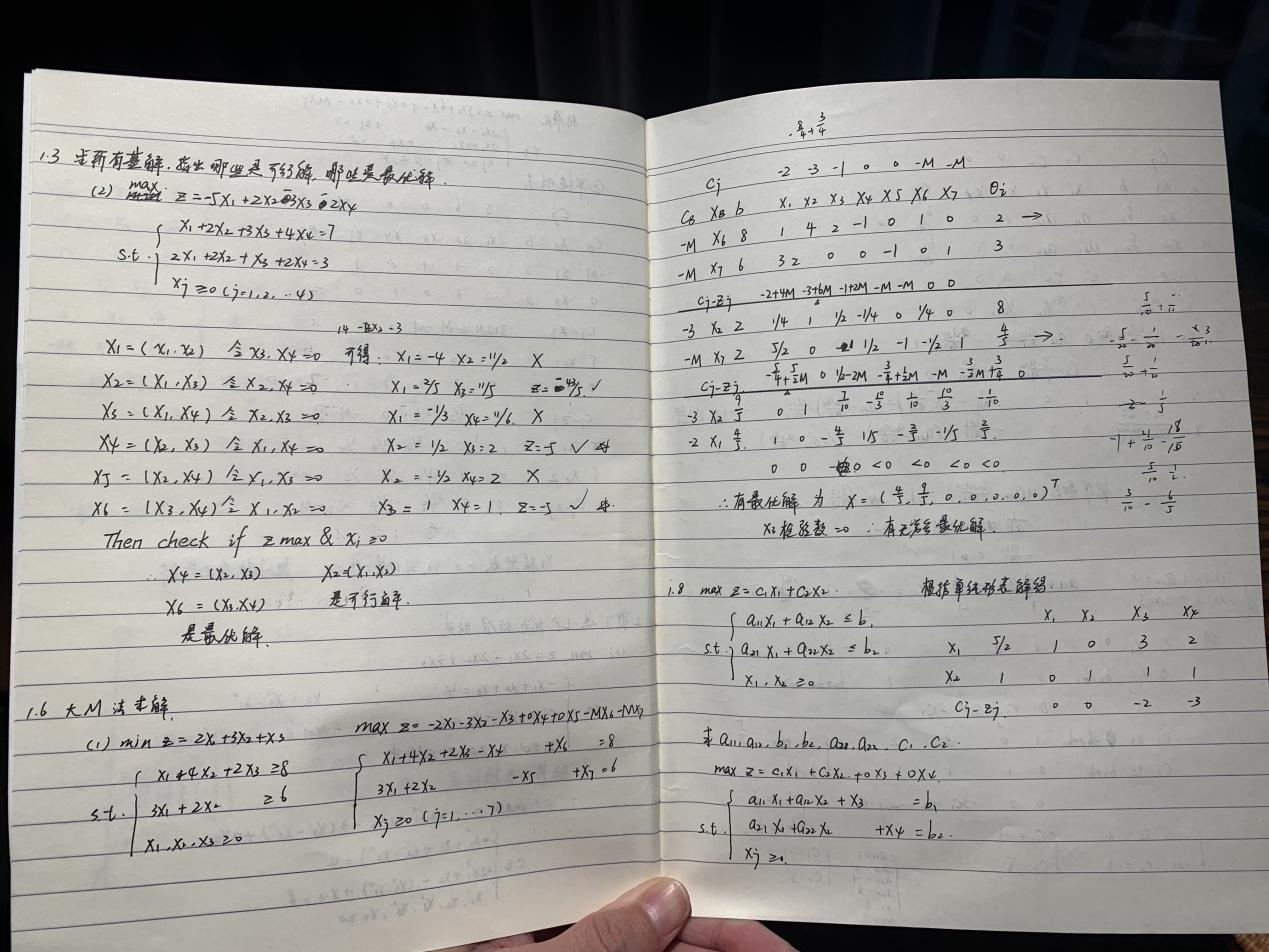 1.3 求所有基解,指出哪些是可行解,哪些是最优解.
(2) max z=-5X1+2X2-3X3-2X4
s.t.
X1+2X2+3X3+4X4=7
2X1+2X2+X3+2X4=3
Xj≥0 (j=1,2,…4)
X1=(X1,X2) 令X3,X4=0 可得: X1=-4 X2=11/2 X
X2=(X1,X3) 令X2,X4=0 X1=2/5 X3=11/5 z=-43/5 ✓
X3=(X1,X4) 令X2,X3=0 X1=-1/3 X4=11/6. X
X4=(X2,X3) 令X1,X4=0 X2=1/2 X3=2 z=-5 ✓ ☆
X5=(X2,X4) 令X1,X3=0 X2=-1/2 X4=2 X
X6=(X3,X4) 令X1,X2=0 X3=1 X4=1. z=-5 ✓ ☆.
Then check if z max & Xj≥0:
∴ X4=(X2,X3) X2=(X1,X3)
X6=(X3,X4) 是可行解.
是最优解.
1.6 大M法求解.
(1) min z=2X1+3X2+X3
s.t.
X1+4X2+2X3≥8
3X1+2X2 ≥6
X1,X2,X3≥0
max z=-2X1-3X2-X3+0X4+0X5-MX6-MX7
X1+4X2+2X3-X4 +X6 =8
3X1+2X2 -X5 +X7=6
Xj≥0 (j=1,…,7)
-8/4+3/4
Cj -2 -3 -1 0 0 -M -M
CB XB b X1 X2 X3 X4 X5 X6 X7 θi
-M X6 8 1 4 2 -1 0 1 0 2 →
-M X7 6 3 2 0 0 -1 0 1 3
Cj-Zj -2+4M -3+6M -1+2M -M -M 0 0
-3 X2 2 1/4 1 1/2 -1/4 0 1/4 0 8
-M X7 2 5/2 0 -1 1/2 -1 -1/2 1 4/5 →
Cj-Zj -5/4+5/2M 0 1/2-2M -3/4+1/2M -M -3/2M+3/4 0
-3 X2 9/5 0 1 7/10 -10/3 1/10 10/3 -1/10
-2 X1 4/5 1 0 -4/5 1/5 -2/5 -1/5 2/5
0 0 0 <0 <0 <0 <0
∴有最优解为 X=(4/5,9/5,0,0,0,0,0)T
X3检验数=0 ∴有无穷多最优解.
1.8 max z=C1X1+C2X2. 根据单纯形表解得.
s.t.
a11X1+a12X2≤b1
a21X1+a22X2≤b2
X1,X2≥0
X1 X2 X3 X4
X1 5/2 1 0 3 2
X2 1 0 1 1 1
Cj-Zj 0 0 -2 -3
求a11,a12,b1,b2,a21,a22,C1,C2.
max z=C1X1+C2X2+0X3+0X4
s.t.
a11X1+a12X2+X3 =b1
a21X1+a22X2 +X4=b2.
Xj≥0.